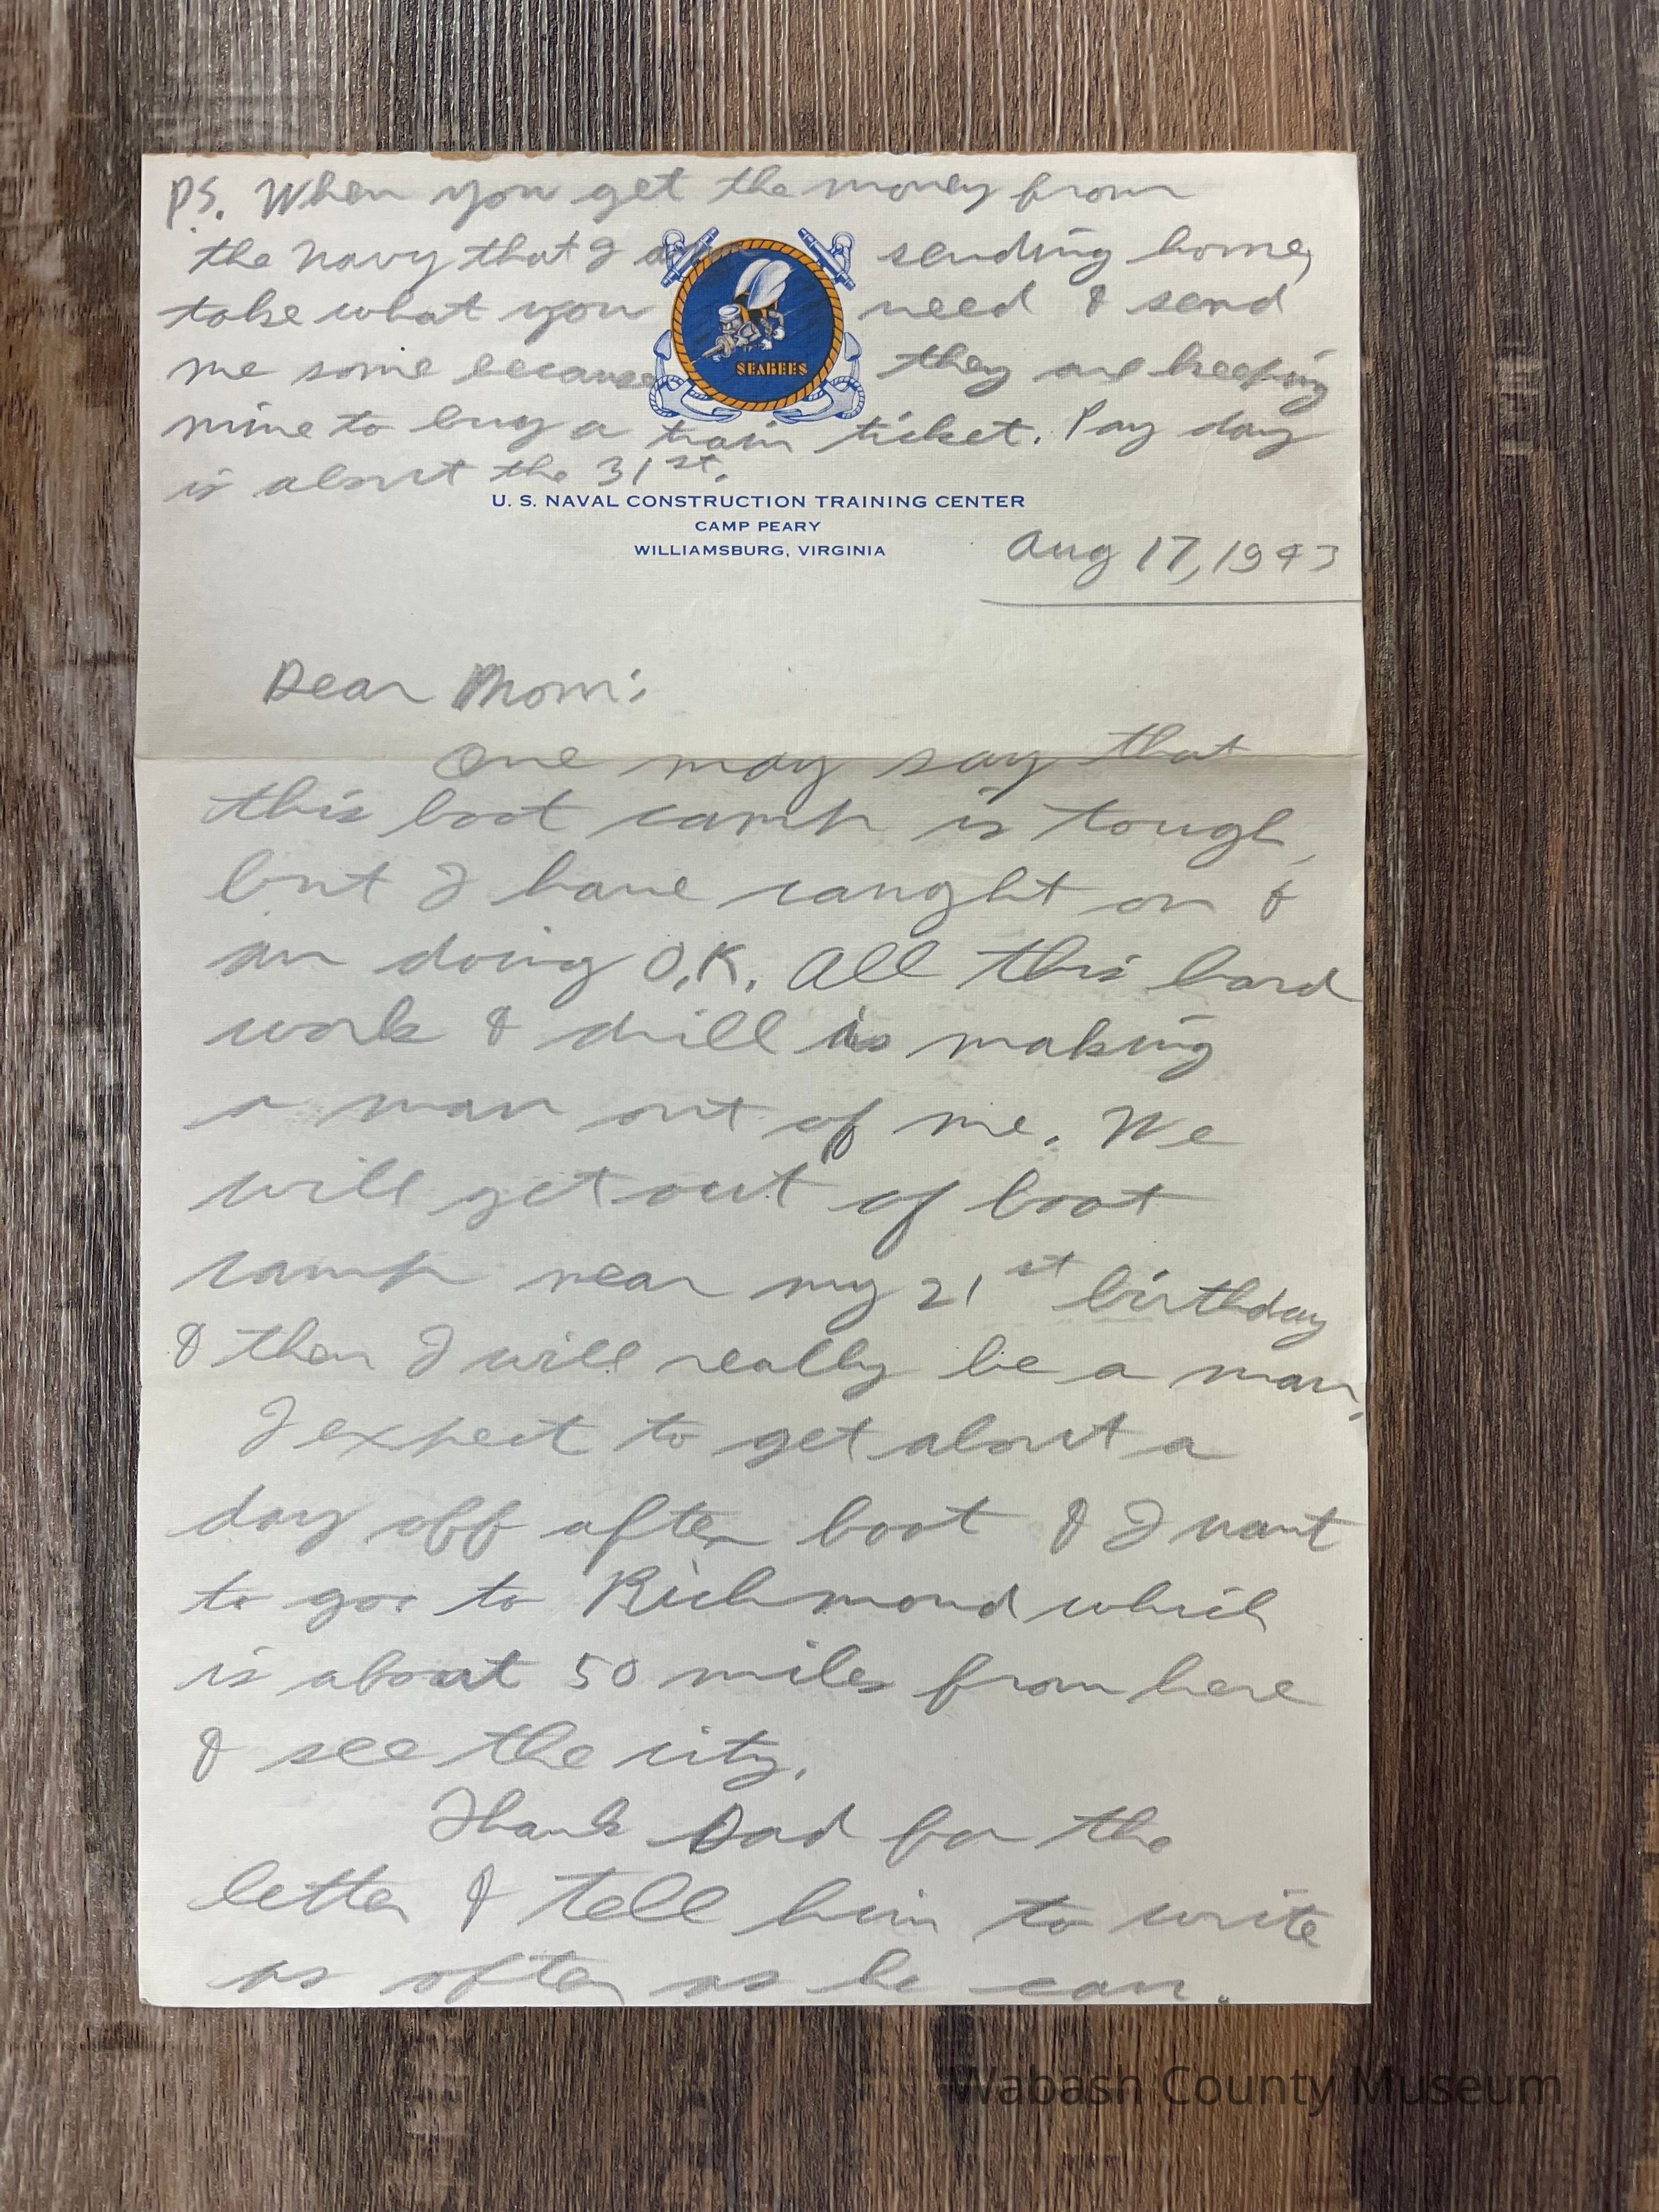 P.S. When you get the money from
the navy that I am sending home,
take what you need & send
me some because they are keeping
mine to buy a train ticket. Pay day
is about the 31st.
SEABEES
U. S. NAVAL CONSTRUCTION TRAINING CENTER
CAMP PEARY
WILLIAMSBURG, VIRGINIA
Aug 17, 1943
Dear Mom:
One may say that
this boot camp is tough,
but I have caught on &
am doing O.K. All this hard
work & drill is making
a man out of me. We
will get out of boot
camp near my 21st birthday
& then I will really be a man.
I expect to get about a
day off after boot & I want
to go to Richmond which
is about 50 miles from here
& see the city.
Thank Dad for the
letter & tell him to write
as often as he can.
Wabash County Museum